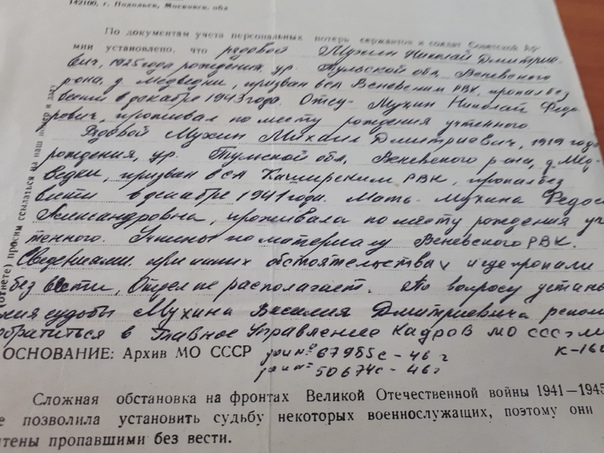 142100, г. Подольск, Московск. обл
По документам учета персональных потерь сержантов и солдат Советской Ар-
мии установлено, что рядовой Мухин Николай Дмитрие-
вич, 1925 года рождения, ур. Тульской обл, Веневского
р-она, д. Медведки, призван в СА Веневским РВК, пропал без
вести в декабре 1943 года. Отец - Мухин Николай Федо
рович, проживал по месту рождения учтенного
Рядовой Мухин Михаил Дмитриевич, 1919 года
рождения, ур. Тульской обл, Веневского р-она, д. Мед-
ведки, призван в СА Каширским РВК, пропал без
вести в декабре 1941 года. Мать - Мухина Федос
Александровна, проживала по месту рождения уч
тенного. Учтены по материалу Веневского РВК.
Сведениями, при каких обстоятельствах и где пропали
без вести, Отдел не располагает. По вопросу устано
ния судьбы Мухина Василия Дмитриевича реком
обратиться в Главное Управление Кадров МО СССР
К-16
ОСНОВАНИЕ: Архив МО СССР 67985с - 46 г
50674с - 46 г
(ответе) просим ссылаться на наш и дату
Сложная обстановка на фронтах Великой Отечественной войны 1941—1945
е позволила установить судьбу некоторых военнослужащих, поэтому они
тены пропавшими без вести.